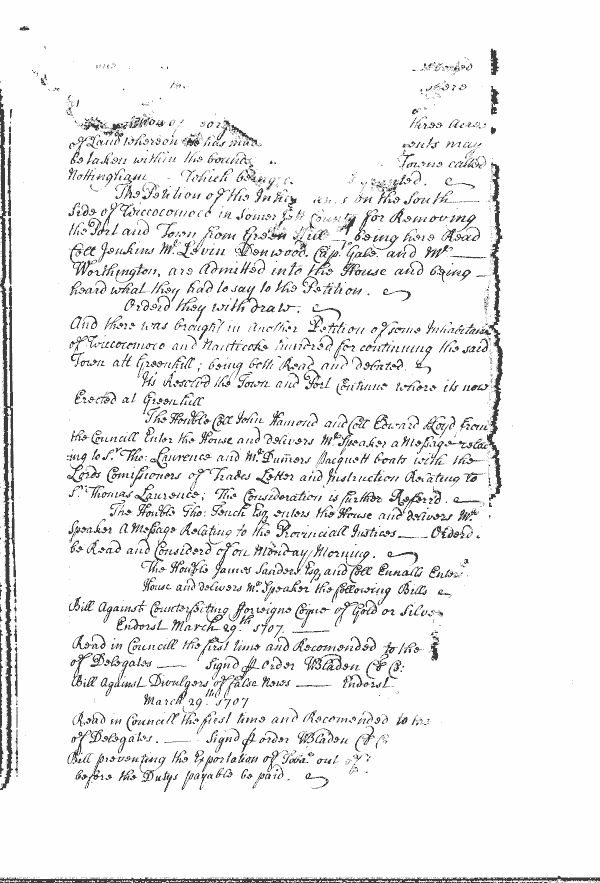 three Acres
of Land whereon he has made ents may
be taken within the bounds Towne called
Nottingham Which being
The Petition of the on the South
side of Wiccocomoco in Somersett County for Removing
the Port and Town from Green Hill being here Read
Coll Jenkins Mr. Levin Denwood Capt. Gale and Mr.
Worthington, are Admitted into the House and being
heard what they had to say to the Petition.
Orderd they withdraw.
And there was brought in another Petition of some Inhabitants
of Wiccocomoco and Nanticoke hundred for continuing the said
Town att Greenhill; being both Read and debated.
Its Resolvd the Town and Port Continue where its now
Erected at Greenhill
The Honble Coll John Hamond and Coll Edward Lloyd from
the Councill Enter the House and delivers Mr. Speaker a Message relat
ing to Sr. Tho: Laurence and Mr. Dumers Pacquett boats with the
Lords Comissioners of Trades Letter and Instruction Relating to
Sr. Thomas Laurence; The Consideration is further Referrd.
The Honble Tho: Tench Esq enters the House and delivers Mr.
Speaker A Message Relating to the Provinciall Justices — Orderd.
be Read and Considerd of on Monday Morning.
The Honble James Sanders Esq and Coll Ennalls Enter
House and delivers Mr. Speaker the following Bills
Bill Against Counterfeiting fforeigne Coyne of Gold or Silver
Endorst March 29th. 1707
Read in Councill the first time and Recomended to the
of Delegates — Signd p order WBladen Cl Co:
Bill Against Divulgers of false News — Endorst
March 29th. 1707
Read in Councill the first time and Recomended to the
of Delegates. — Signd p order WBladen Cl Co
Bill preventing the Exportation of Tobao. out of
before the Dutys payable be paid.